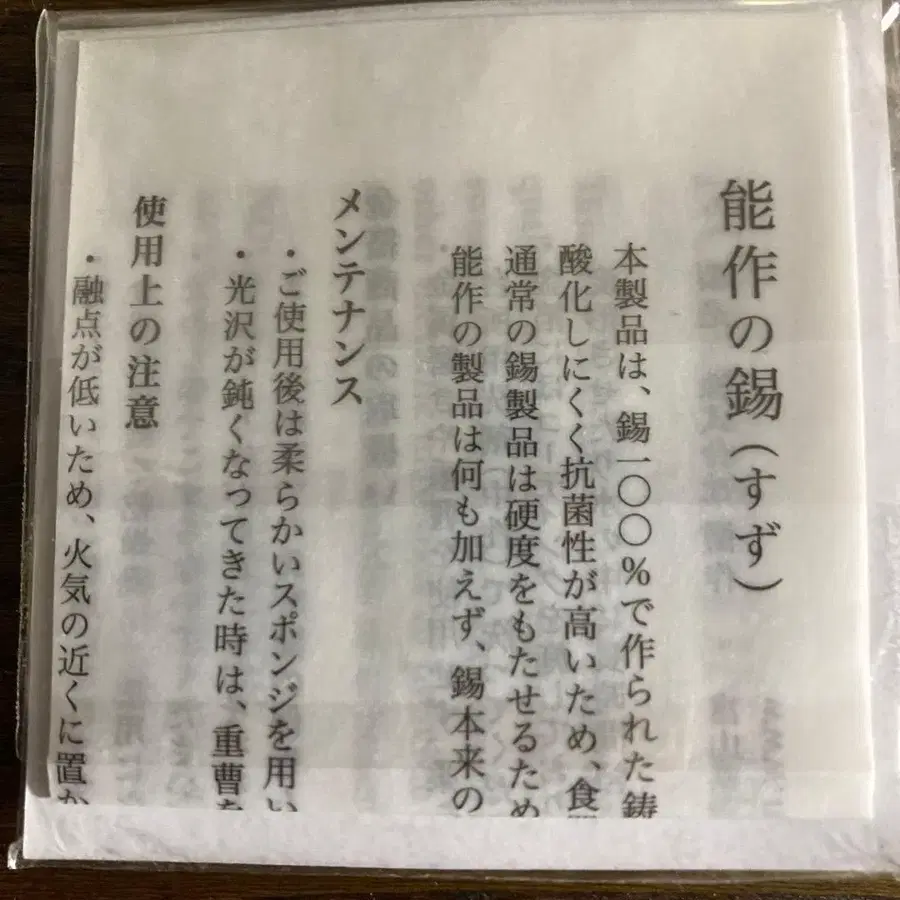 能作の錫(すず)
本製品は、錫一〇〇%で作られた鋳
酸化しにくく抗菌性が高いため、食
通常の錫製品は硬度をもたせるため
能作の製品は何も加えず、錫本来の
メンテナンス
・ご使用後は柔らかいスポンジを用い
・光沢が鈍くなってきた時は、重曹を
使用上の注意
・融点が低いため、火気の近くに置か